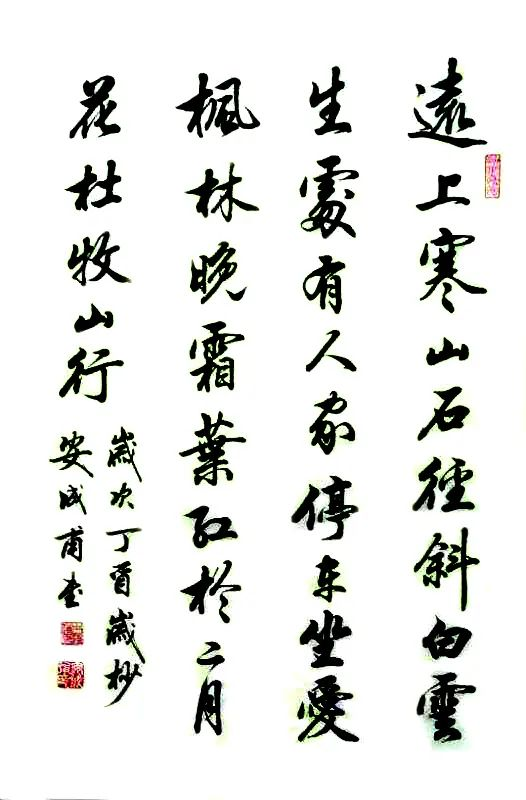 遠上寒山石徑斜白雲
生處有人家停車坐愛
楓林晚霜葉紅於二月
花杜牧山行
歲次丁酉歲杪
安成甫書